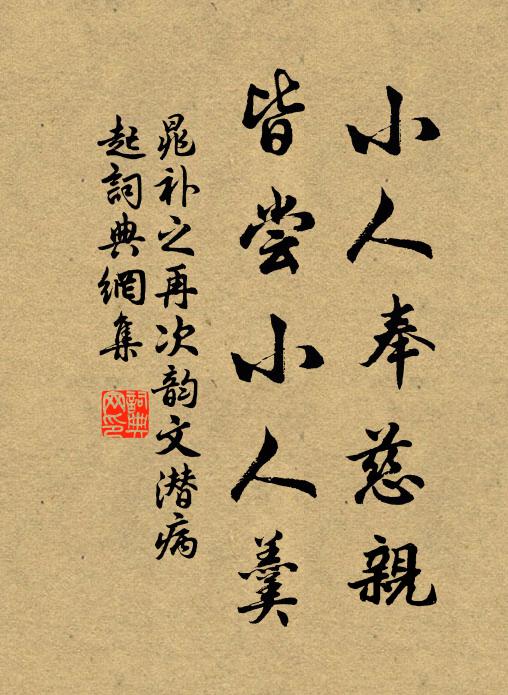 小人奉慈親
皆尝小人羹
晁补之再次韵文潜病
起詞典網集
詞典网印